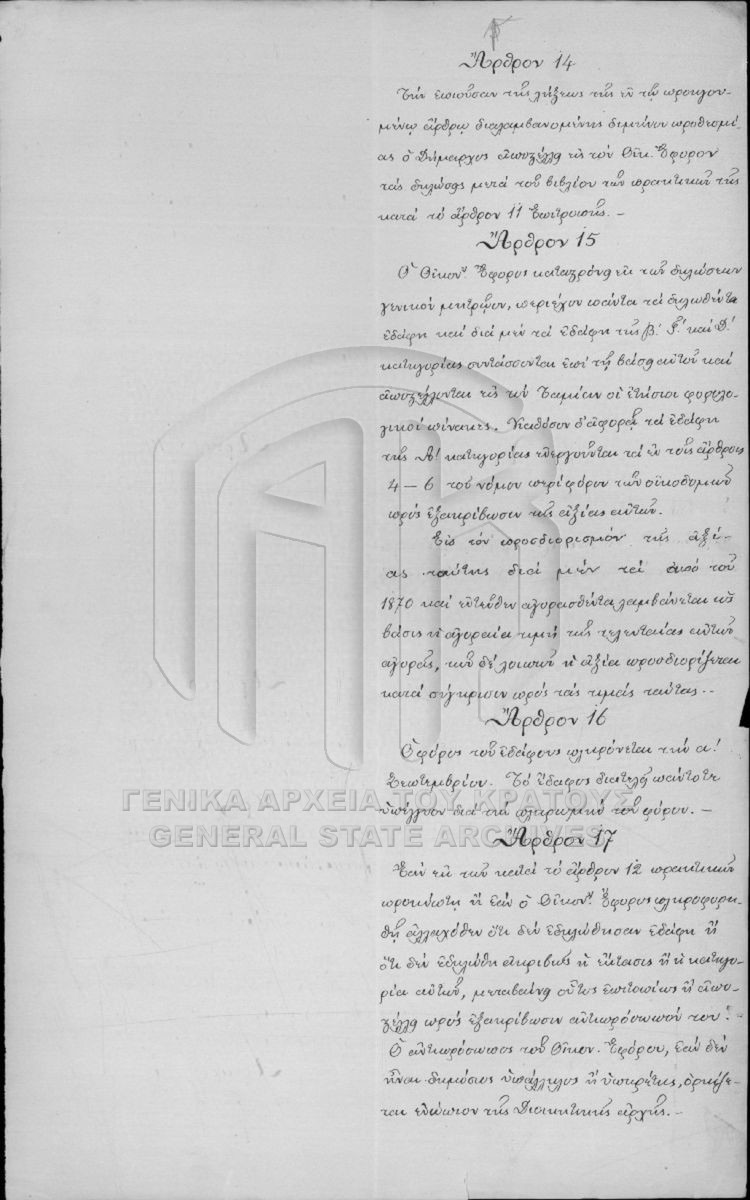 Ἄρθρον 14
Τὴν ἐπιοῦσαν τῆς λήξεως τῆς ἐν τῷ προηγου-
μένῳ ἄρθρῳ διαλαμβανομένης διμήνου προθεσμί-
ας ὁ Δήμαρχος ἀποστέλλῃ εἰς τὸν Οἰκ. Ἔφορον
τὰς δηλώσεις μετὰ τοῦ βιβλίου τῶν πρακτικῶν τῆς
κατὰ τὸ ἄρθρον 11 Ἐπιτροπῆς. –
Ἄρθρον 15
Ὁ Οἰκον. Ἔφορος καταστρώνῃ ἐκ τῶν δηλώσεων
γενικὸν μητρῷον, περιέχον πάντα τὰ δηλωθέντα
ἐδάφη καὶ διὰ μὲν τὰ ἐδάφη τῆς Β.' Γ.' καὶ Δ.'
κατηγορίας συντάσσονται ἐπὶ τῇ βάσῃ αὐτοῦ καὶ
ἀποστέλλονται εἰς τὸν Ταμίαν οἱ ἐτήσιοι φορολο-
γικοὶ πίνακες. Καθόσον δ' ἀφορᾷ τὰ ἐδάφη
τῆς Α.' κατηγορίας ἐνεργοῦνται τὰ ἐν τοῖς ἄρθροις
4 – 6 τοῦ νόμου περὶ φόρου τῶν οἰκοδομῶν
πρὸς ἐξακρίβωσιν τῆς ἀξίας αὐτῶν.
Εἰς τὸν προσδιορισμὸν τῆς ἀξί-
ας ταύτης διὰ μὲν τὰ ἀπὸ τοῦ
1870 καὶ ἐντεῦθεν ἀγορασθέντα λαμβάνεται ὡς
βάσις ἡ ἀγοραία τιμὴ τῆς τελευταίας αὐτῶν
ἀγορᾶς, τῶν δὲ λοιπῶν ἡ ἀξία προσδιορίζεται
κατὰ σύγκρισιν πρὸς τὰς τιμὰς ταύτας. –
Ἄρθρον 16
Ὁ φόρος τοῦ ἐδάφους πληρόνεται τὴν α!
Σεπτεμβρίου. Τὸ ἔδαφος διατελῇ πάντοτε
ὑπέγγυον διὰ τὴν πληρωμὴν τοῦ φόρου. –
ΓΕΝΙΚΑ ΑΡΧΕΙΑ ΤΟΥ ΚΡΑΤΟΥΣ
GENERAL STATE ARCHIVES
Ἄρθρον 17
Ἐὰν ἐκ τῶν κατὰ τὸ ἄρθρον 12 πρακτικῶν
προκύπτῃ ἢ ἐὰν ὁ Οἰκον. Ἔφορος πληροφορη-
θῇ ἀλλαχόθεν ὅτι δὲν ἐδηλώθησαν ἐδάφη ἢ
ὅτι δὲν ἐδηλώθη ἀκριβῶς ἡ ἔκτασις ἢ ἡ κατηγο-
ρία αὐτῶν, μεταβαίνῃ οὗτος ἐπιτοπίως ἢ ἀπο-
στέλλῃ πρὸς ἐξακρίβωσιν ἀντιπρόσωπόν του. –
Ὁ ἀντιπρόσωπος τοῦ Οἰκον. Ἐφόρου, ἐὰν δὲν
ἦναι δημόσιος ὑπάλληλος ἢ ὑπηρέτης, ὁρκίζε-
ται ἐνώπιον τῆς Διοικητικῆς ἀρχῆς. –